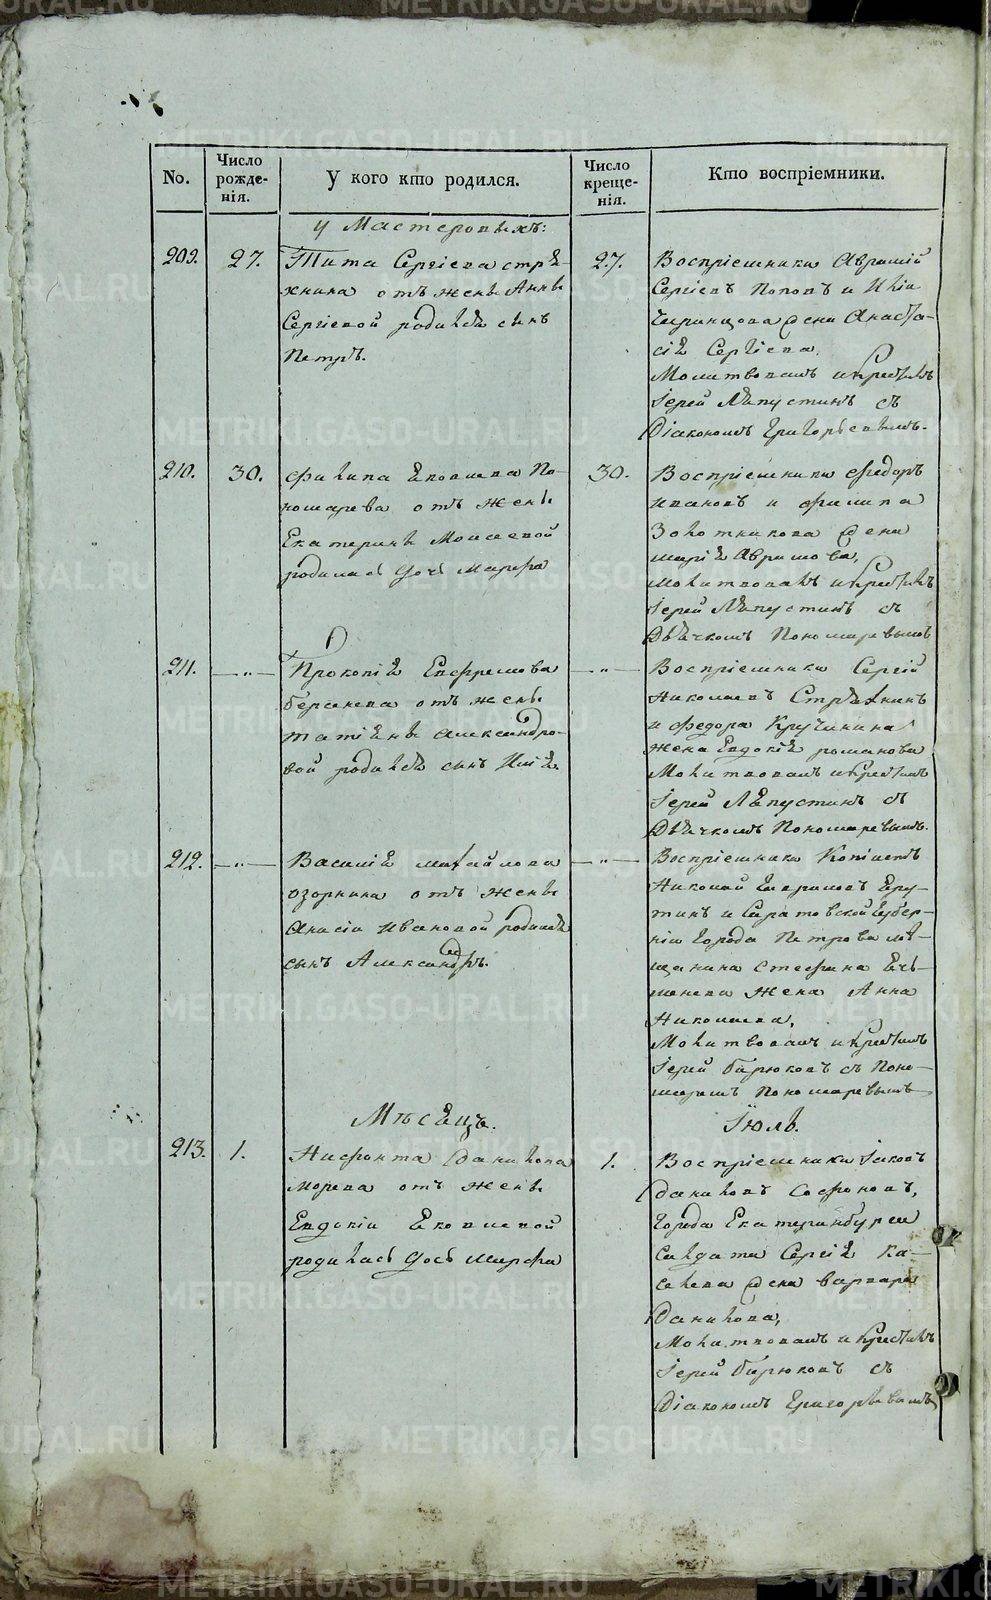 METRIKI.GASO-URAL.RU
No.
Число рожде-
нія.
У кого кто родился.
Число креще-
нія.
Кто воспріемники.
у Мастеровыхъ:
209. 27.
Тита Сергіева стрѣ-
жнина отъ жены Анны
Сергіевой родился сынъ
Петръ.
27.
Воспріемники Аврамій
Сергіевъ Поповъ и
жена Анаста-
сія Сергіева.
Молитвовалъ и крестилъ
Іерей Ляпустинъ съ
Діакономъ Григорьевымъ.
210. 30.
Филипа Яковлева По-
номарева отъ жены
Екатерины Моисеевой
родилась дочь Марфа
30.
Воспріемники Федоръ
Ивановъ и Филипа
Золотникова жена
Марія Аврамова,
Молитвовалъ и крестилъ
Іерей Ляпустинъ съ
Дьячкомъ Пономаревымъ
211. —"—
Прокопія Евфремова
Берсенева отъ жены
Татіяны Александро-
вой родился сынъ Илія.
—"—
Воспріемники Сергій
Николаевъ Стрѣжнинъ
и Федора Кручинина
жена Евдокія Романова
Молитвовалъ и крестилъ
Іерей Ляпустинъ съ
Дьячкомъ Пономаревымъ.
212. —"—
Василія Михайлова
Озорнина отъ жены
Анисіи Ивановой родился
сынъ Александръ.
—"—
Воспріемники Копіистъ
Николай
и Саратовской Губер-
ніи Города Петрова мѣ-
щанина Стефана Ячь-
менева жена Анна
Николаева,
Молитвовалъ и крестилъ
Іерей Бирюковъ съ Поно-
маремъ Пономаревымъ
Мѣсяцъ. Іюль.
213. 1.
Нифонта Данилова
Морева отъ жены
Евдокіи Яковлевой
родилась дочь Марфа
1.
Воспріемники Іаковъ
Даниловъ Софоновъ,
Города Екатеринбурга
Салдата Сергія Ка-
селева жена Варвара
Данилова,
Молитвовалъ и крестилъ
Іерей Бирюковъ съ
Діакономъ Григорьевымъ